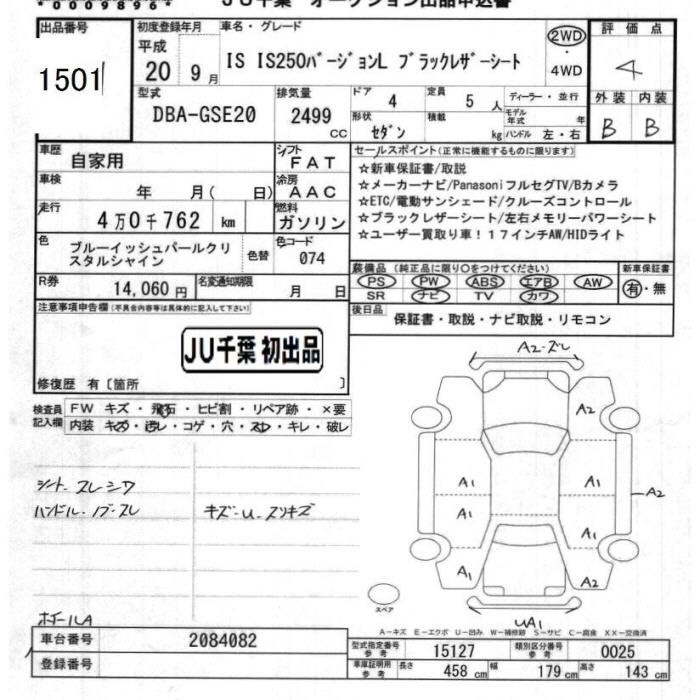 *0009896*
JU千葉 オークション出品申込書
出品番号
1501
初度登録年月
平成
20 9月
車名・グレード
IS IS250バージョンL ブラックレザーシート
2WD
・
4WD
評価点
4
外装 内装
B B
型式
DBA-GSE20
排気量
2499
cc
ドア 4
定員 5 人
ディーラー・並行
形状 セダン
積載 kg
モデル年式 年
ハンドル 左・右
車歴 自家用
シフト FAT
車検 年 月( 日)
冷房 AAC
走行 4万0千762 km
燃料 ガソリン
色 ブルーイッシュパールクリスタルシャイン
色替
色コード 074
R券 14,060 円
名変通知期限 月 日
セールスポイント(正常に機能するものに限ります)
☆新車保証書/取説
☆メーカーナビ/PanasoniフルセグTV/Bカメラ
☆ETC/電動サンシェード/クルーズコントロール
☆ブラックレザーシート/左右メモリーパワーシート
☆ユーザー買取り車!17インチAW/HIDライト
装備品(純正品に限り○をつけてください)
PS PW ABS エアB AW
SR ナビ TV カワ
新車保証書
有・無
後日品 保証書・取説・ナビ取説・リモコン
注意事項申告欄(不具合内容等は具体的に記入して下さい)
JU千葉 初出品
修復歴 有〔箇所 〕
検査員記入欄
FW キズ・飛石・ヒビ割・リペア跡・×要
内装 キズ・汚レ・コゲ・穴・スレ・キレ・破レ
シート・スレ・シワ
ハンドル・ノブ・スレ
キズ・U・スリキズ
ホイールA
A2-ズレ
A2
A1
A1
A1
A2
A1
A1
A1
UA1
スペア
A-キズ E-エクボ U-凹み W-補修跡 S-サビ C-腐食 XX-交換済
車台番号 2084082
登録番号
型式指定番号 参考 15127
類別区分番号 参考 0025
車庫証明用 参考 長さ 458 cm 幅 179 cm 高さ 143 cm